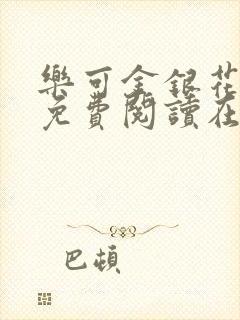 樂可金銀花
免費閱讀在
巴頓